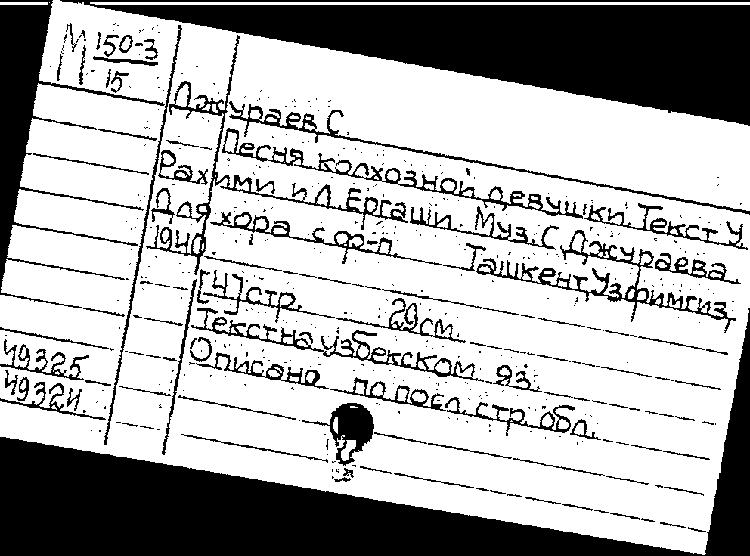 М 150-3
15
Джураев, С.
Песня колхозной девушки. Текст У.
Рахими и Л. Ергаши. Муз. С. Джураева.
Для хора с ф-п. Ташкент, Узфимгиз,
1940.
[4] стр. 29 см.
Текст на узбекском яз.
Описано по посл. стр. обл.
49325
49324.